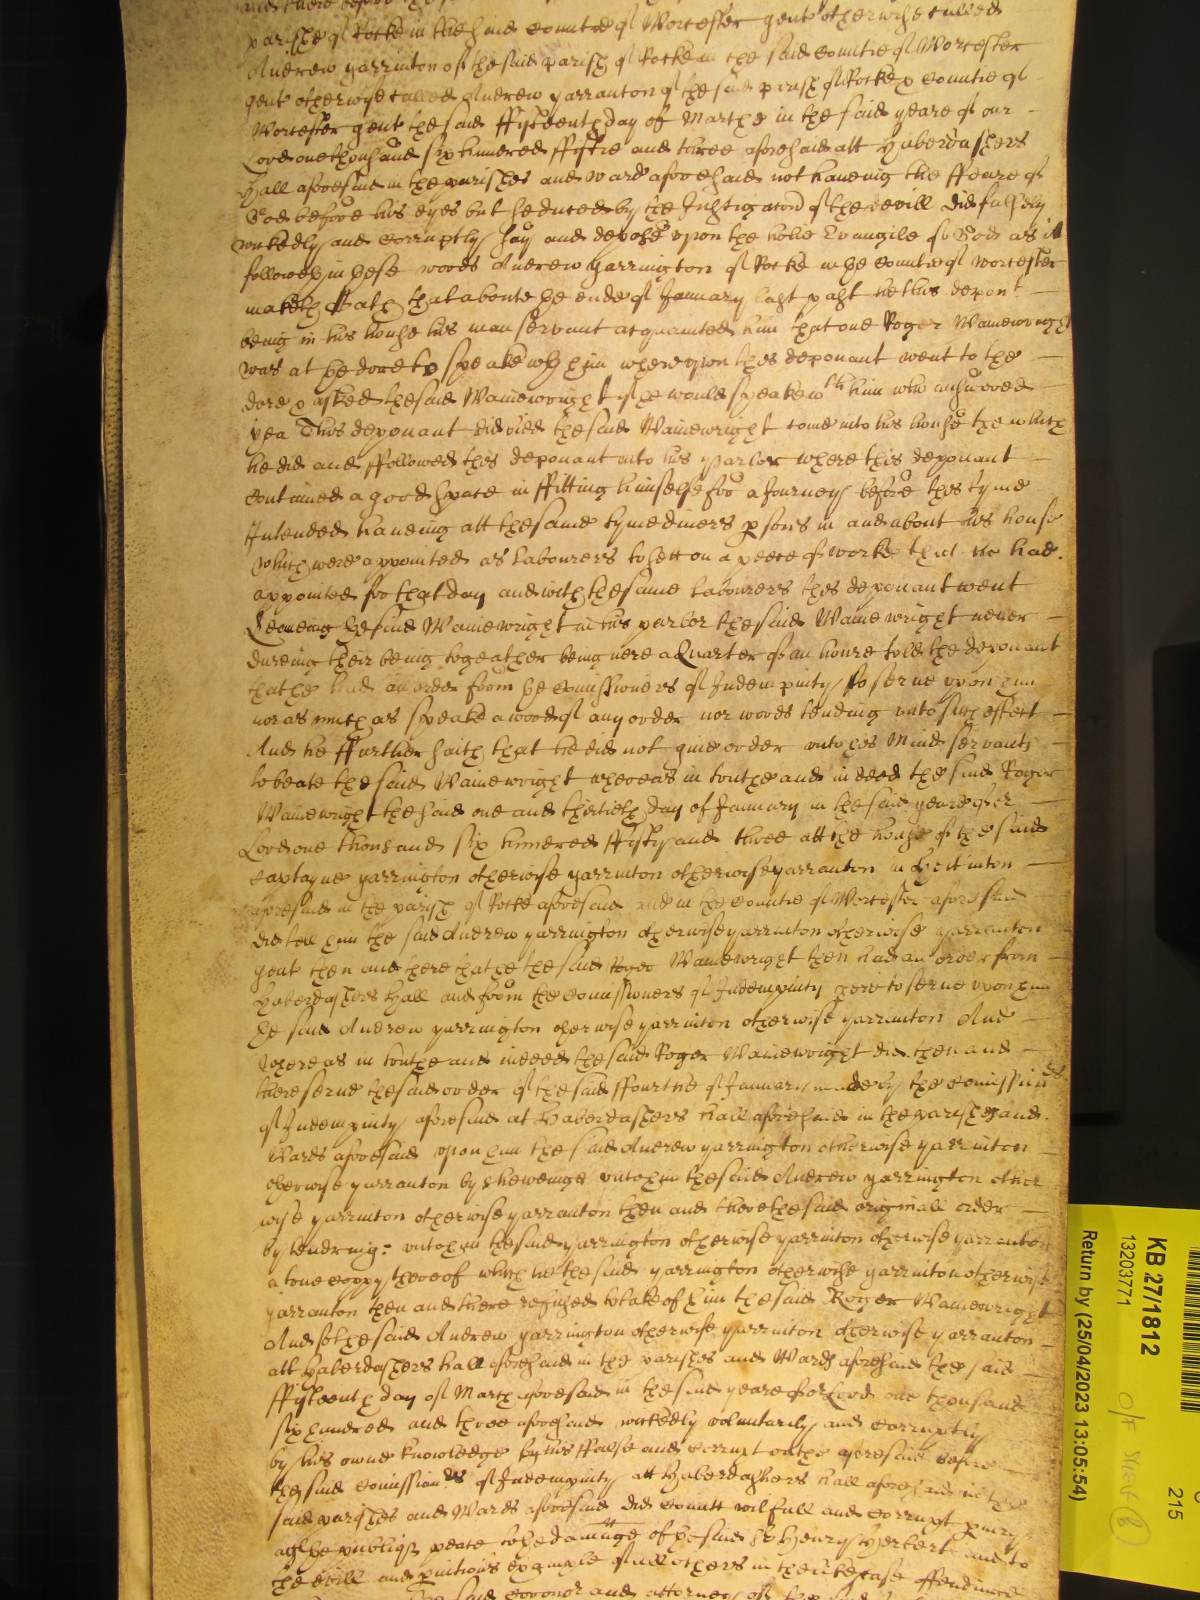 and there before the
parishe of Rocke in the said Countie of Worcester gent otherwise called
Andrew yarrinton of the said parish of Rocke in the said Countie of Worcester
gent otherwise called Andrew yarranton of the said parish of Rocke & Countie of
Worcester gent the said ffifteenth day of Marche in the said yeare of our
Lord one thousand six hundred ffiftie and three aforesaid att Haberdashers
Hall aforesaid in the parishes and Ward aforesaid not haveing the ffeare of
God before his eyes but seduced by the Instigacon of the devill did falsely
wickedly and corruptly say and depose upon the holie Evangile of God as it
followeth in these words Andrew yarrington of Rocke in the Countie of Worcester
maketh Oath that aboute the ende of January last past hee this depont
being in his house his man servant acquainted him that one Roger Wainewright
was at the dore to speake wth him whereupon this deponant went to the
dore & asked the said Wainewright if he would speake wth him who answered
yea This deponant did bid the said Wainewright come into his house the which
he did and ffollowed this deponant into his parlor where this deponant
continued a good space in ffitting himselfe for a Journey before this tyme
Intended haveing att the same tyme divers psons in and about his house
which were appointed as Labourers to sett on a peece of worke that he had
appointed for that day and with the same Labourers this deponant went
Leaveing the said Wainewright in his parlor the said Wainewright never
dureing their being togeather being nere a Quarter of an houre told the deponant
that he had an order from the Comissioners of Indempnity to serve upon him
nor as much as speake a word of any order nor words tending unto such effect
And he ffurther saith that he did not give order unto his Maid servants
to beate the said Wainewright whereas in truthe and in deed the said Roger
Wainewright the said one and thirtieth day of January in the said yeare of or
Lord one thousand six hundred ffifty and three att the house of the said
Captayne yarrington otherwise yarrinton otherwise yarranton in
aforesaid in the parish of Rocke aforesaid and in the Countie of Worcester aforesaid
did tell him the said Andrew yarrington otherwise yarrinton otherwise yarranton
gent then and there that he the said Roger Wainewright then had an order from
Haberdashers Hall and from the Comissioners of Indempnity there to serve upon him
the said Andrew yarrington otherwise yarrinton otherwise yarranton And
Whereas in truthe and indeed the said Roger Wainewright did then and
there serve the said order of the said ffourthe of January made by the Comissionrs
of Indempnity aforesaid at Haberdashers Hall aforesaid in the parishes and
Wards aforesaid upon him the said Andrew yarrington otherwise yarrinton
otherwise yarranton by sheweinge unto him the said Andrew yarrington other
wise yarrinton otherwise yarranton then and there the said originall order
by tendring unto him the said yarrington otherwise yarrinton otherwise yarranton
a true coppy thereof which he the said yarrington otherwise yarrinton otherwise
yarranton then and there refused to take of him the said Roger Wainewright
And soe the said Andrew yarrington otherwise yarrinton otherwise yarranton
att Haberdashers hall aforesaid in the parishes and Wards aforesaid the said
ffifteenth day of March aforesaid in the said yeare of or Lord one thousand
six hundred and three aforesaid wickedly voluntarily and corruptly
by his owne knowledge by his ffalse and corrupt oathe aforesaid before
the said Comissionrs of Indempnity att Haberdashers Hall aforesaid in the
said parishes and Wards aforesaid did comitt wilfull and corrupt piury
agt the publiq peace to the damage of the said Sr Henry Herbert and to
the evill and pnitious example of all others in the like case offending
and attorney of
KB 27/1812
13203771
Return by (25/04/2023 13:05:54)
215